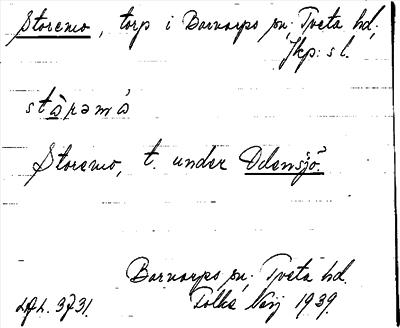 Storemo, torp i Barnarps sn; Tveta hd,
Jkp: s l.
stàrəmó
Storemo, t. under Odensjö.
Barnarps sn. Tveta hd.
Folke 1939.